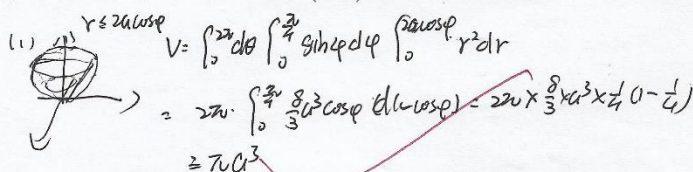 (1) r≤2acosφ V= ∫₀^{2π} dθ ∫₀^{π/4} sinφdφ ∫₀^{2acosφ} r²dr
= 2π· ∫₀^{π/4} 8/3 a³cosφ (d(-cosφ) = 2π × 8/3 × a³ × 1/4 (1 - 1/4)
= πa³